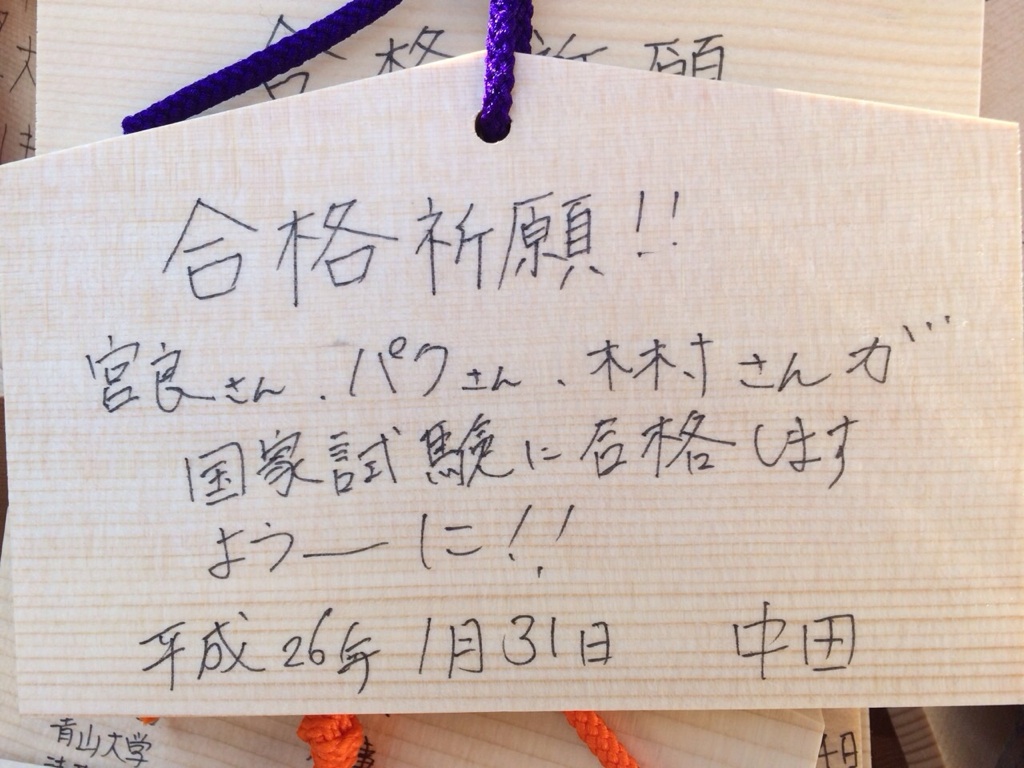 合格祈願
合格祈願!!
宮良さん、パクさん、木村さんが
国家試験に合格します
ようーに!!
平成26年1月31日 中田
青山大学